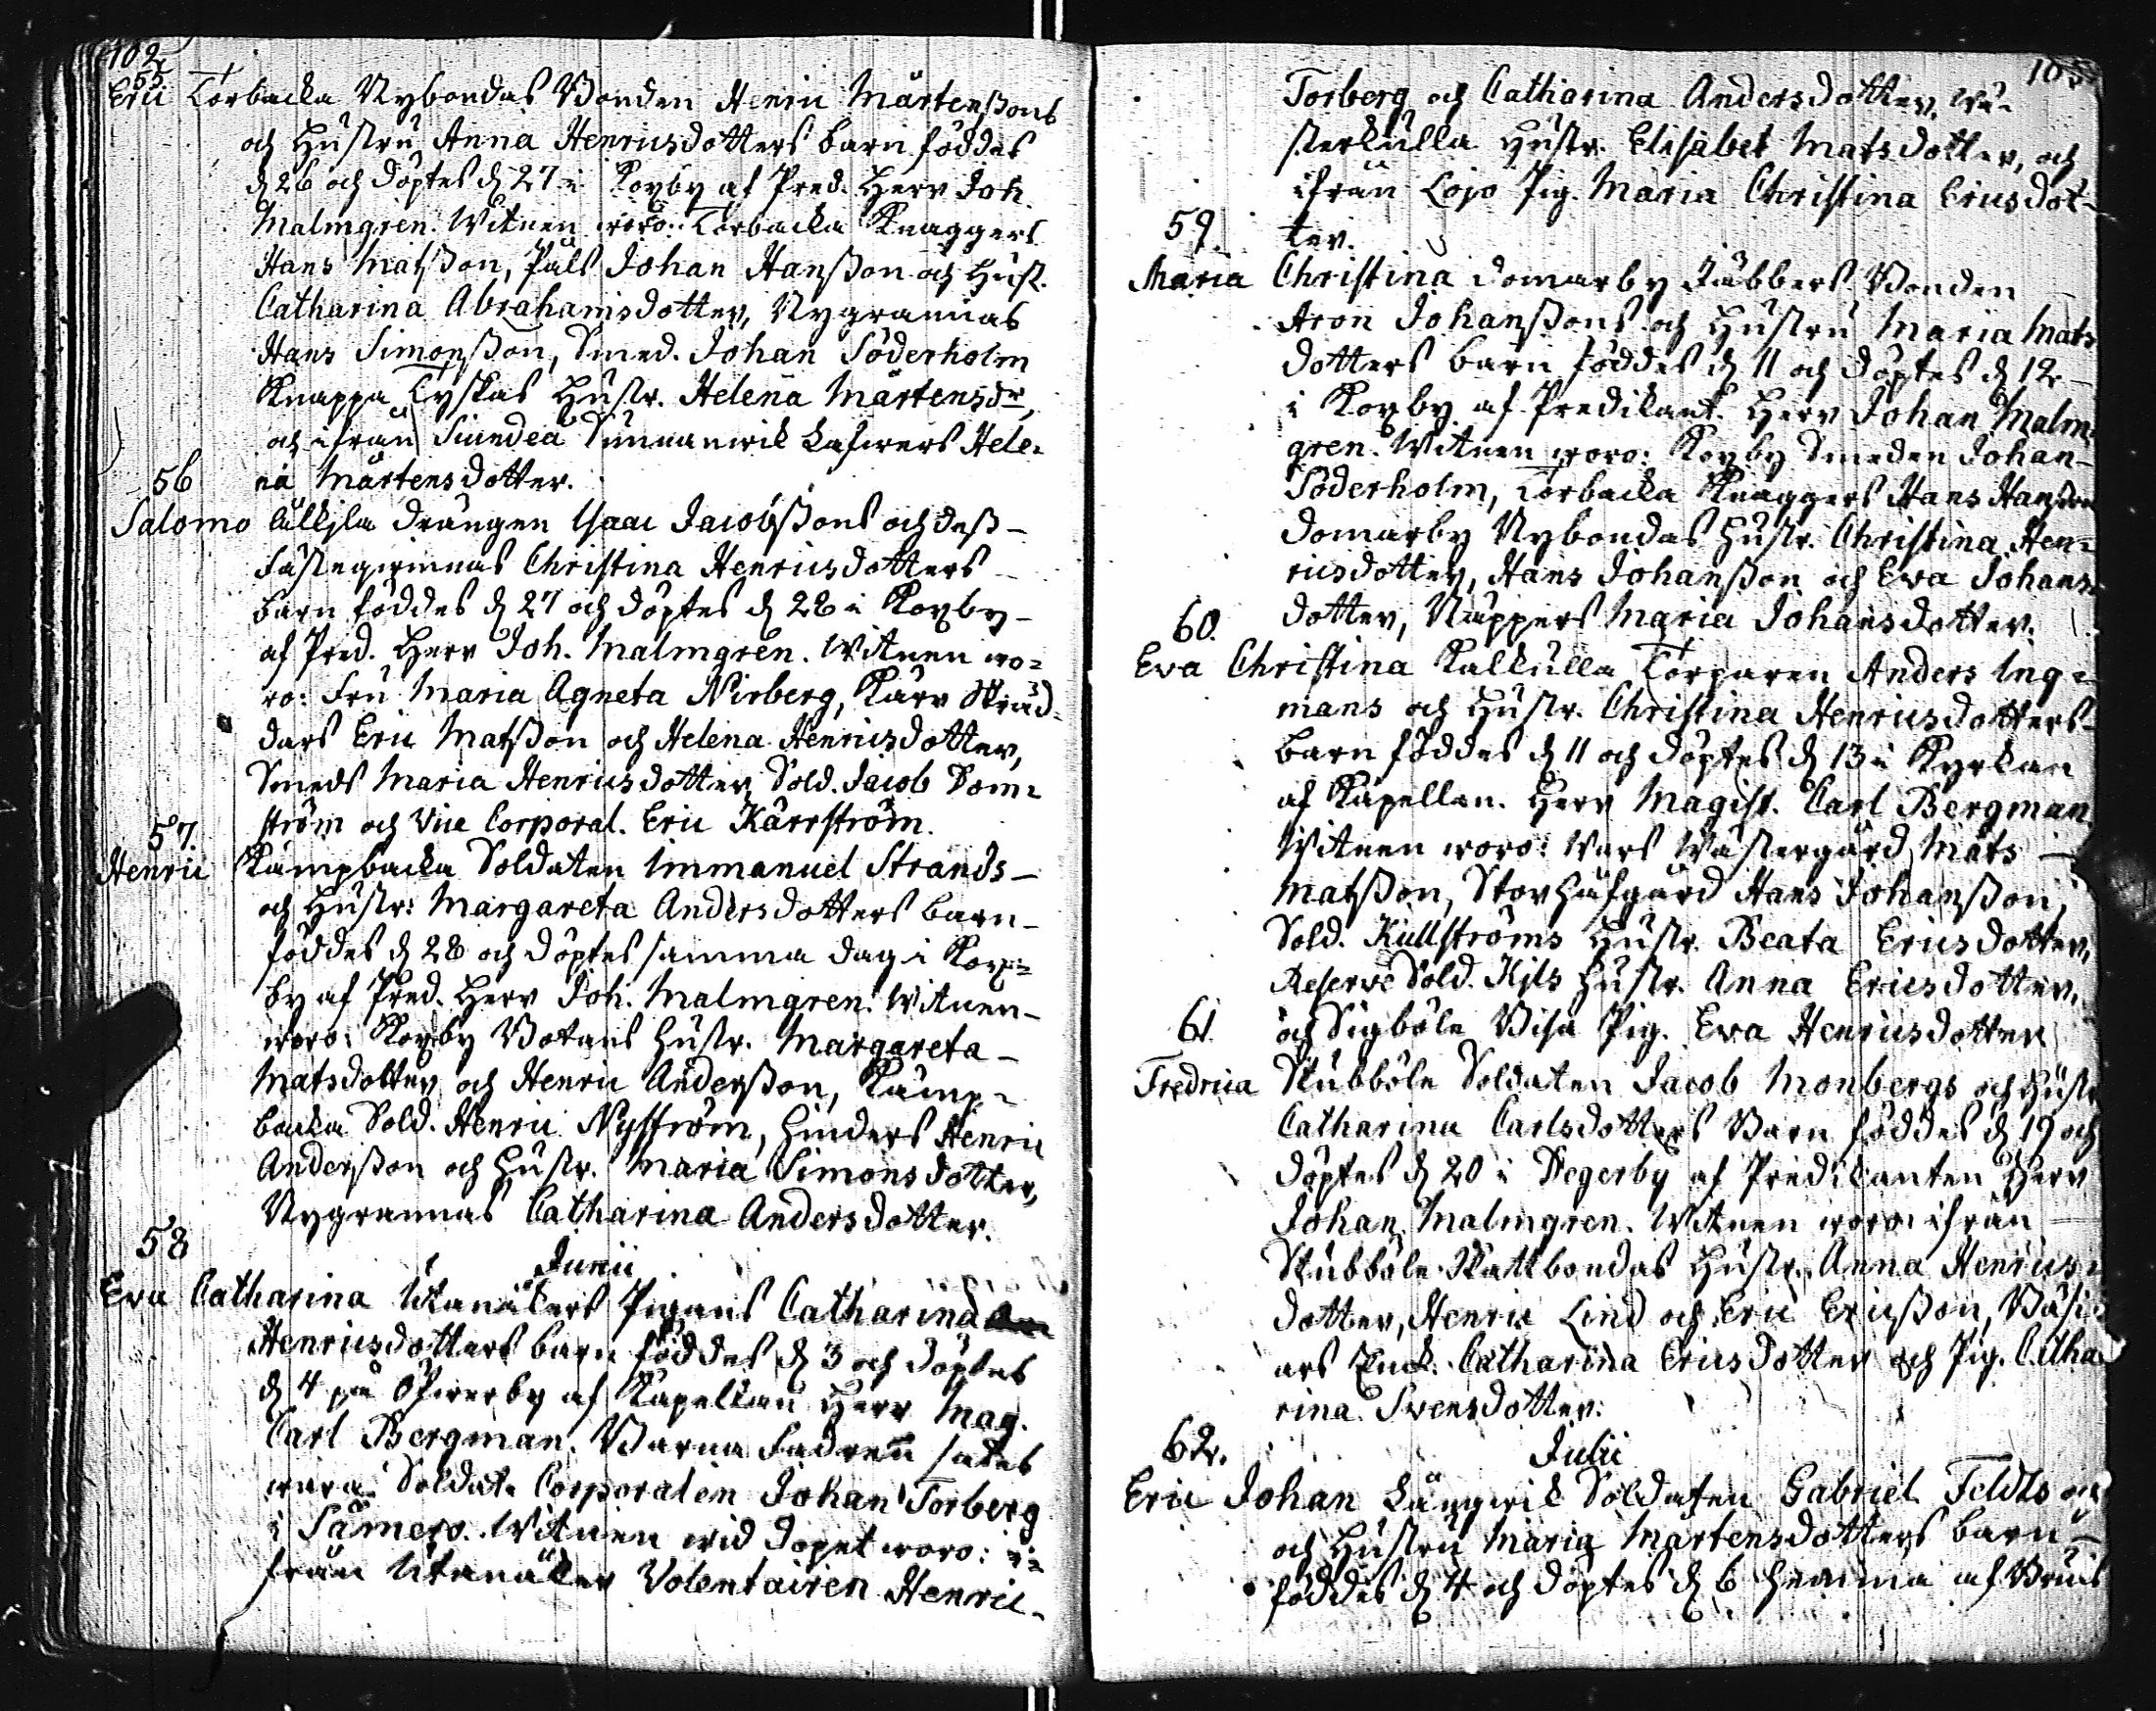 102
55
Eric Torbacka Nybondas Bonden Henric Mårtenßons
och Hustru Anna Henricsdotters barn föddes
d 26 och döptes d 27 i Koxby af Pred. Herr Joh.
Malmgren. Witnen woro: Torbacka Knaggers
Hans Matsßon, Påls Johan Hanßon och Hust.
Catharina Abrahamsdotter, Nygrannas
Hans Simonßon, Smed. Johan Söderholm
Knappa Tyskas Hustr. Helena Mårtensdr,
och ifrån Siundeå Sunnanwik Hele-
56 na Mårtensdotter.
Salomo Drängen Isaac Jacobßons och deß
Fästeqwinnas Christina Henricsdotters
barn föddes d 27 och döptes d 28 i Koxby
af Pred. Herr Joh. Malmgren. Witnen wo-
ro: Fru Maria Agneta Nirberg, Kärr Skräd-
dars Eric Matsßon och Helena Henricsdotter,
Smeds Maria Henricsdotter, Sold. Jacob Dom-
57. ström och Vice Corporal. Eric Kärrström.
Henric Kämpbacka Soldaten Immanuel Strands
och Hustr: Margareta Andersdotters barn
föddes d 28 och döptes samma dag i Kox-
by af Pred. Herr Joh. Malmgren. Witnen
woro: Koxby Botans Hustr. Margareta
Matsdotter och Henric Anderßon, Kämp-
backa Sold. Henric Nyström, Hinders Henric
Anderßon och Hustr. Maria Simonsdotter,
Nygrannas Catharina Andersdotter.
58 Junii
Eva Catharina Utanåkers Pigans Catharina
Henricsdotters barn föddes d 3 och döptes
d 4 på Öfwerby af Kapellan Herr Mag.
Carl Bergman. Barna Fadren sades
wara Soldate Corporalen Johan Torberg
i Witnen wid dopet woro: i-
från Utanåker Volentairen Henric
103
Torberg och Catharina Andersdotter, Wä-
sterkulla Hustr. Elisabet Matsdotter, och
ifrån Lojo Pig. Maria Christina Ericsdot-
59. ter.
Maria Christina Domarby Jäbbers Bonden
Aron Johanßons och Hustru Maria Mats
dotters barn föddes d 11 och döptes d 12
i Koxby af Predikant. Herr Johan Malm-
gren. Witnen woro: Koxby Smeden Johan
Söderholm, Torbacka Knaggers Hans Hansson
Domarby Nybondas Hustr. Christina Hen-
ricsdotter, Hans Johanßon och Eva Johans-
60. dotter, Nappers Maria Johansdotter.
Eva Christina Kalkulla Torparen Anders Ing-
mans och Hustr. Christina Henricsdotters
barn föddes d 11 och döptes d 13 i Kyrkan
af Kapellan. Herr Magist. Carl Bergman
Witnen woro: Wars Wästergård Mats
Matsßon, Storhufgård Hans Johanßon,
Sold. Kullströms Hustr. Beata Ericsdotter,
Reserve Sold. Kjls Hustr. Anna Ericsdotter,
61. och Sigböle Wisa Pig. Eva Henricsdotter
Fredrica Stubböle Soldaten Jacob Monbergs och Hustr
Catharina Carlsdotters Barn föddes d 19 och
döptes d 20 i Degerby af Predikanten Herr
Johan Malmgren. Witnen woro: ifrån
Stubböle Skattbondas Hustr. Anna Henrics-
dotter, Henric Lind och Eric Ericßon,
Catharina Ericsdotter och Pig. Catha
rina Svensdotter.
62. Julii
Eric Johan Långwik Soldaten Gabriel Feldts
och Hustru Maria Mårtensdotters barn
föddes d 4 och döptes d 6 hemma af